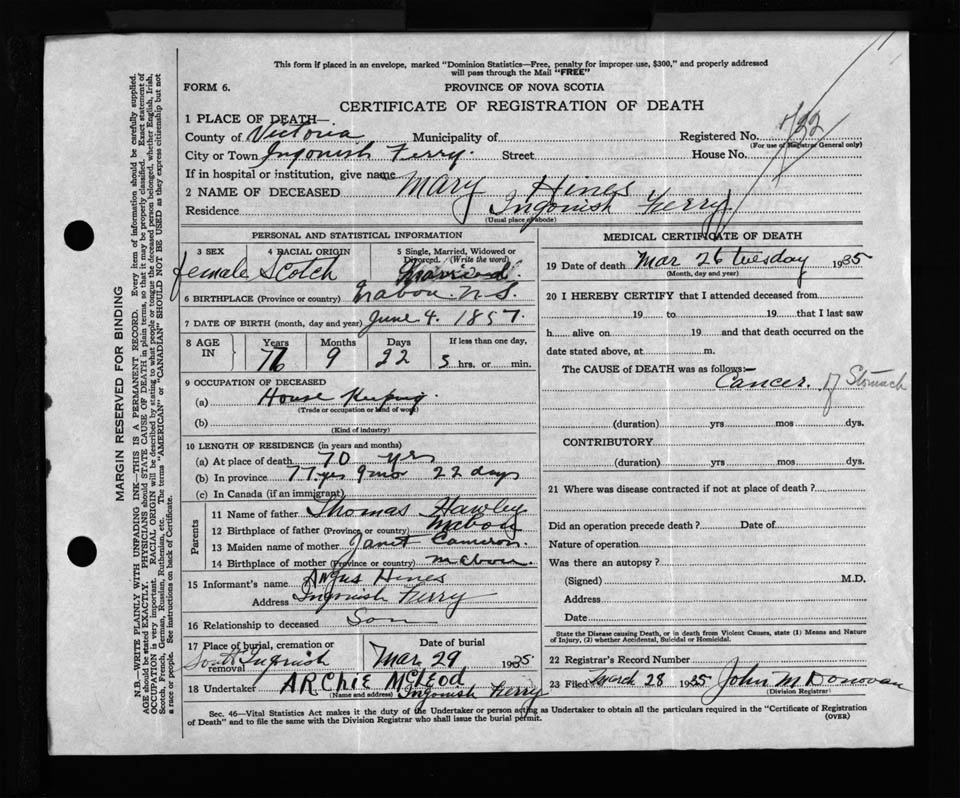 This form if placed in an envelope, marked "Dominion Statistics—Free, penalty for improper use, $300," and properly addressed
will pass through the Mail "FREE"
FORM 6.
PROVINCE OF NOVA SCOTIA
CERTIFICATE OF REGISTRATION OF DEATH
1 PLACE OF DEATH—
County of Victoria Municipality of Registered No. 422
(For use of Registrar General only)
City or Town Ingonish Ferry. Street House No.
If in hospital or institution, give name
2 NAME OF DECEASED Mary Hines
Residence Ingonish Ferry.
(Usual place of abode)
PERSONAL AND STATISTICAL INFORMATION
3 SEX 4 RACIAL ORIGIN 5 Single, Married, Widowed or
Divorced. (Write the word)
female Scotch
6 BIRTHPLACE (Province or country) Mabou. N.S.
7 DATE OF BIRTH (month, day and year) June 4. 1857.
8 AGE IN Years Months Days If less than one day,
9 22 hrs. or min.
9 OCCUPATION OF DECEASED
(a) House Keeping.
(Trade or occupation or kind of work)
(b)
(Kind of industry)
10 LENGTH OF RESIDENCE (in years and months)
(a) At place of death 70 yrs
(b) In province 77 yrs 9 mo 22 days
(c) In Canada (if an immigrant)
Parents
11 Name of father Thomas Hawley
12 Birthplace of father (Province or country) Mabou
13 Maiden name of mother Janet Cameron.
14 Birthplace of mother (Province or country) Mabou.
15 Informant's name Angus Hines
Address Ingonish Ferry
16 Relationship to deceased Son
17 Place of burial, cremation or
removal South Ingonish
Date of burial
Mar 29 1935
18 Undertaker ARChie McLeod
(Name and address) Ingonish Ferry
MEDICAL CERTIFICATE OF DEATH
19 Date of death Mar 26 tuesday 1935
(Month, day and year)
20 I HEREBY CERTIFY that I attended deceased from
19 to 19 that I last saw
h alive on 19 and that death occurred on the
date stated above, at m.
The CAUSE of DEATH was as follows:—
Cancer. of Stomach
(duration) yrs mos dys.
CONTRIBUTORY
(duration) yrs mos dys.
21 Where was disease contracted if not at place of death?
Did an operation precede death? Date of
Nature of operation
Was there an autopsy?
(Signed) M.D.
Address
Date
State the Disease causing Death, or in death from Violent Causes, state (1) Means and Nature
of Injury, (2) whether Accidental, Suicidal or Homicidal.
22 Registrar's Record Number
23 Filed March 28 1935 John M Donovan
(Division Registrar)
Sec. 46—Vital Statistics Act makes it the duty of the Undertaker or person acting as Undertaker to obtain all the particulars required in the "Certificate of Registration
of Death" and to file the same with the Division Registrar who shall issue the burial permit.
(OVER)
MARGIN RESERVED FOR BINDING
N.B.—WRITE PLAINLY WITH UNFADING INK—THIS IS A PERMANENT RECORD. Every item of information should be carefully supplied.
AGE should be stated EXACTLY. PHYSICIANS should STATE CAUSE OF DEATH in plain terms, so that it may be properly classified. Exact statement of
OCCUPATION is very important. RACIAL ORIGIN will be described by stating to what people or tongue the deceased person belonged, whether English, Irish,
Scotch, French, German, Russian, Ruthenian, etc. The terms "AMERICAN" or "CANADIAN" SHOULD NOT BE USED as they express citizenship but not
a race or people. See instructions on back of Certificate.